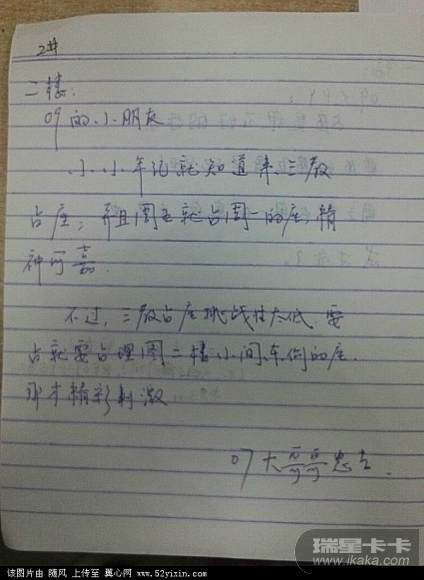 2#
二楼:
09的小朋友
小小年纪就知道来三教
占座; 并且周五就占周一的座, 精
神可嘉.
不过, 三教占座挑战性太低. 要
占就要占理图二楼小间车间的座.
那才精彩刺激
07大哥哥忠上.
瑞星卡卡
www.ikaka.com
该图片由 随风 上传至 翼心网 www.52yixin.com